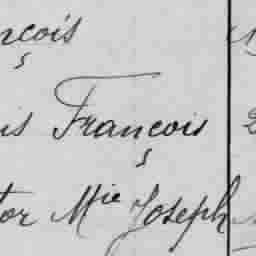 nçois
is François 2
tor Mie Joseph